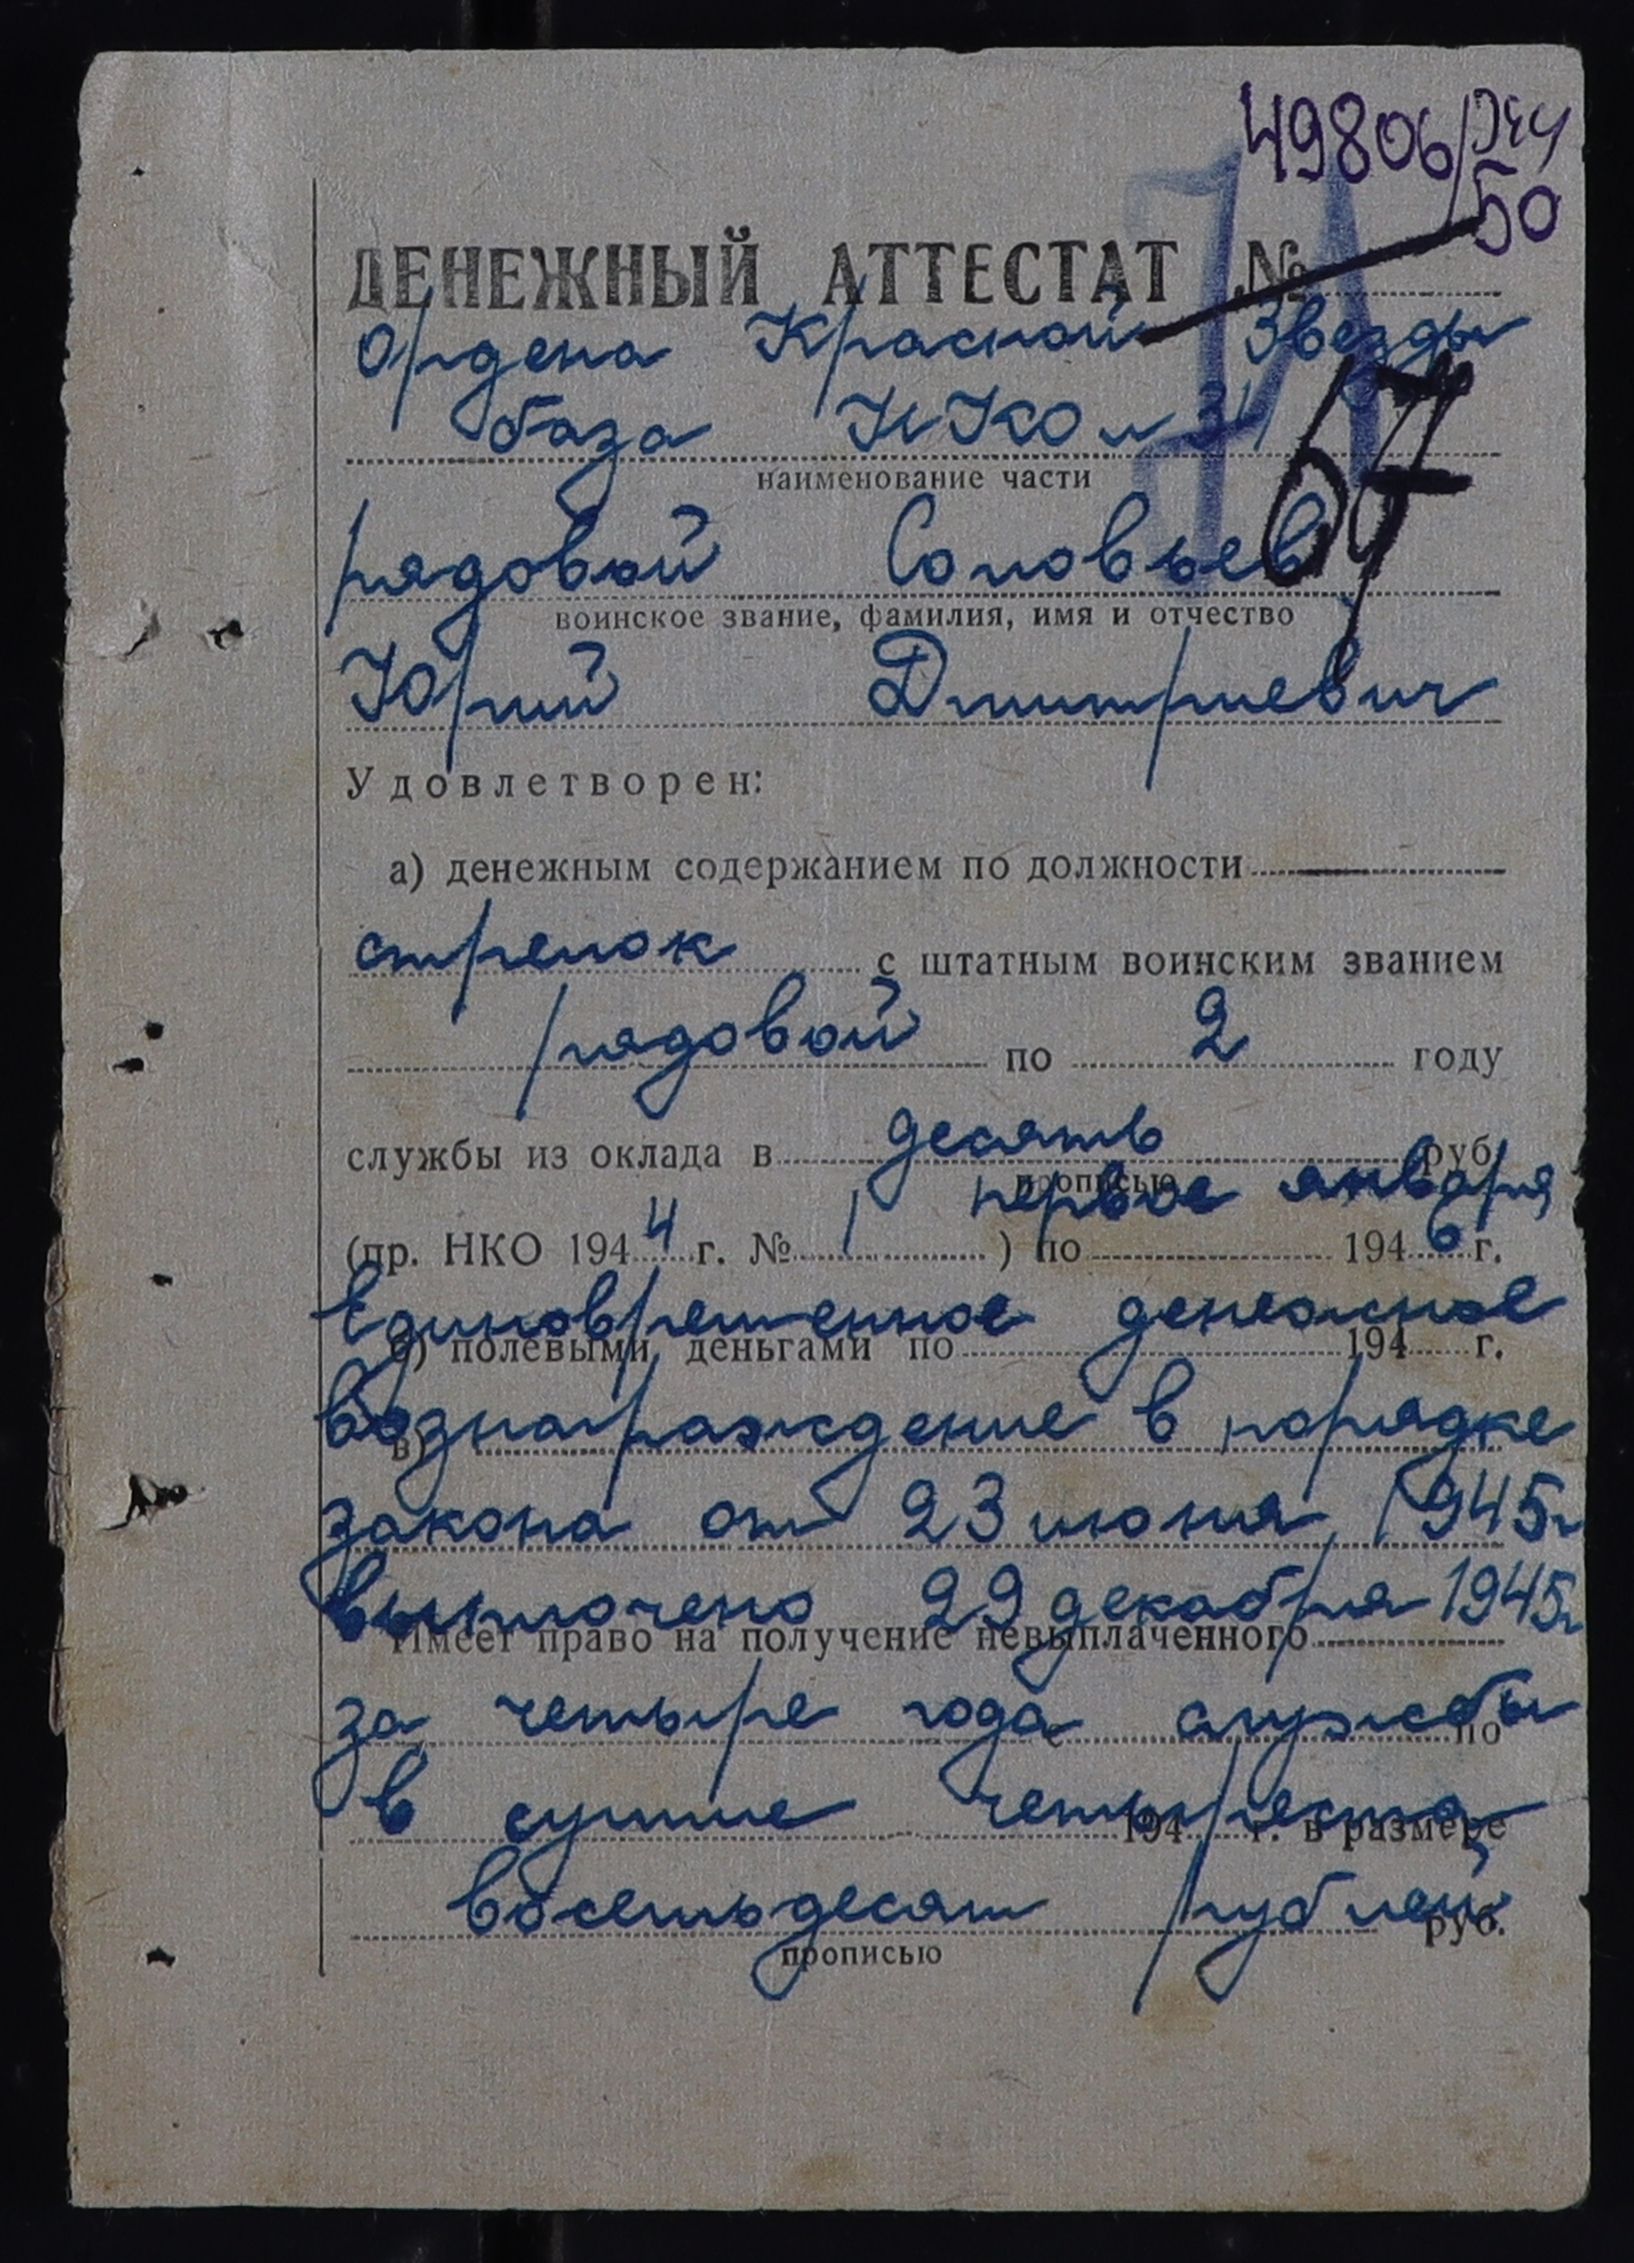 49806/
50
ДЕНЕЖНЫЙ АТТЕСТАТ №
Ордена Красной Звезды
база НКО № 34
67
наименование части
рядовой Соловьев
воинское звание, фамилия, имя и отчество
Юрий Дмитриевич
Удовлетворен:
а) денежным содержанием по должности
стрелок с штатным воинским званием
рядовой по 2 году
службы из оклада в десять руб.
прописью
первое января
(пр. НКО 194 4 г. № 1 ) по 194 6 г.
Единовременное денежное
б) полевыми деньгами по 194 г.
вознаграждение в порядке
в)
закона от 23 июня 1945г
выплочено 29 декабря 1945г
Имеет право на получение невыплаченного
за четыре года службы
по
в сумме четыреста
194 г. в размере
восемьдесят рублей
руб.
прописью